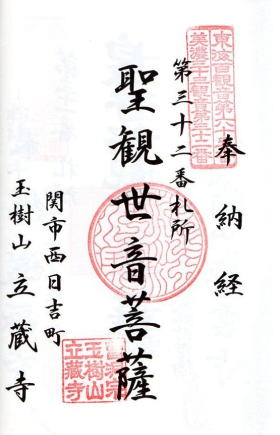 奉納経
東海百観音第六十五番
美濃三十三観音第三十二番
第三十二番札所
聖観世音菩薩
関市西日吉町
玉樹山 立蔵寺
曹洞宗
玉樹山
立蔵寺